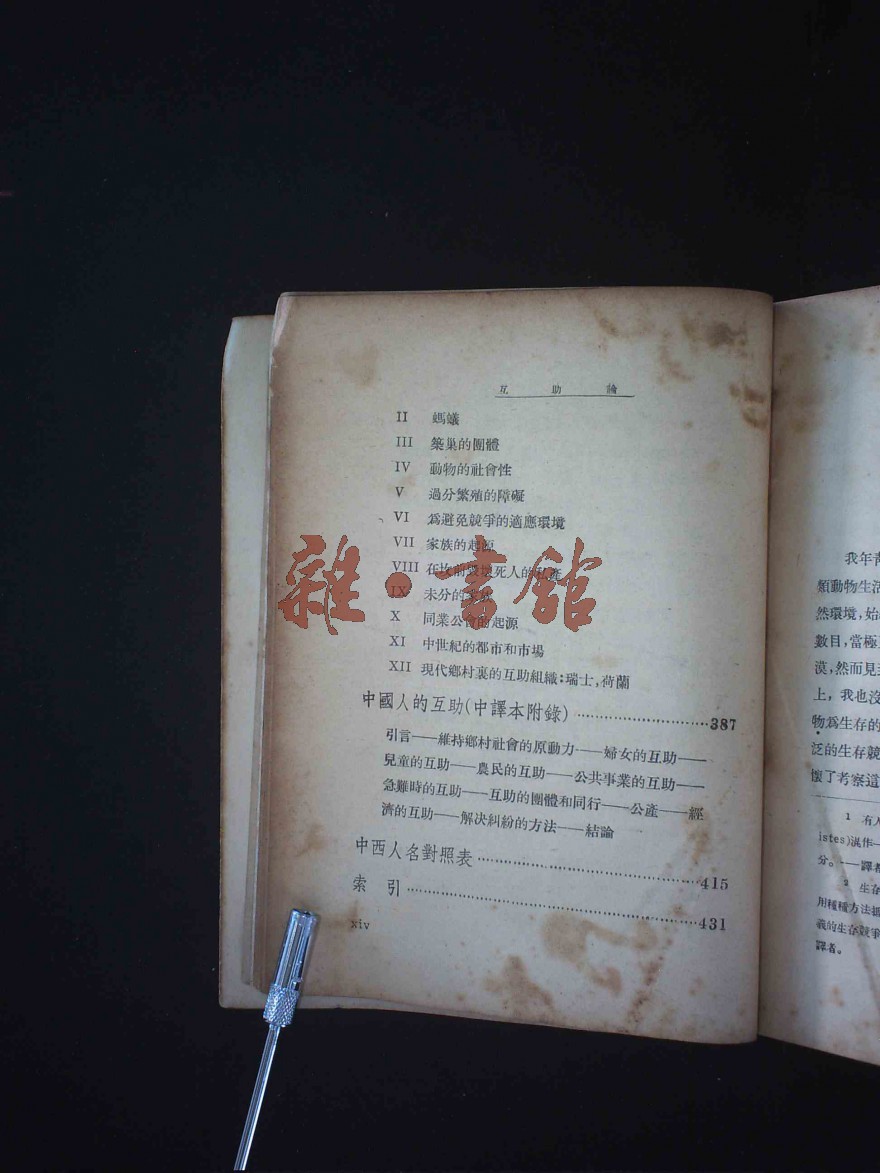 互助論
II 螞蟻
III 築巢的團體
IV 動物的社會性
V 過分繁殖的障礙
VI 爲避免競爭的適應環境
VII 家族的起源
VIII 在坟前毀壞死人的私產
IX 未分的家族
X 同業公會的起源
XI 中世紀的都市和市場
XII 現代鄉村裏的互助組織:瑞士,荷蘭
中國人的互助(中譯本附錄)……387
引言——維持鄉村社會的原動力——婦女的互助——
兒童的互助——農民的互助——公共事業的互助——
急難時的互助——互助的團體和同行——公產——經
濟的互助——解決糾紛的方法——結論
中西人名對照表……415
索引……431
xiv
雜·書館
我年青
類動物生活
然環境,始
數目,當極
漠,然而見
上,我也沒
物爲生存的
泛的生存競
懷了考察這
1 有人
istes)混作一
分。——譯者
2 生存
用種種方法抵
義的生存競爭
譯者。